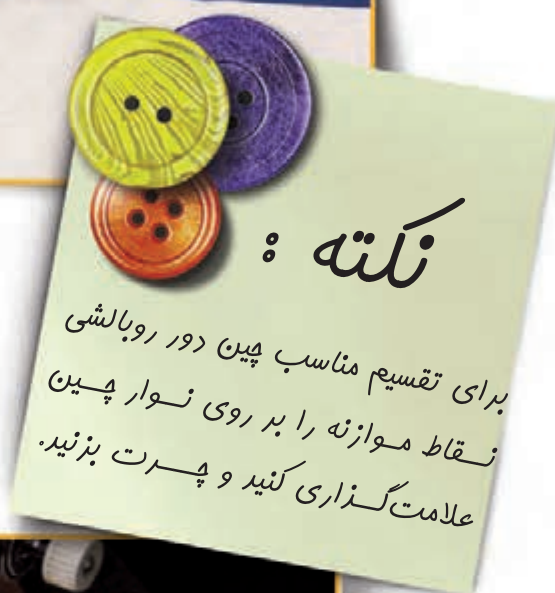 نکته :
برای تقسیم مناسب چین دور روبالشی
نقاط موازنه را بر روی نوار چین
علامت‌گذاری کنید و چرت بزنید.